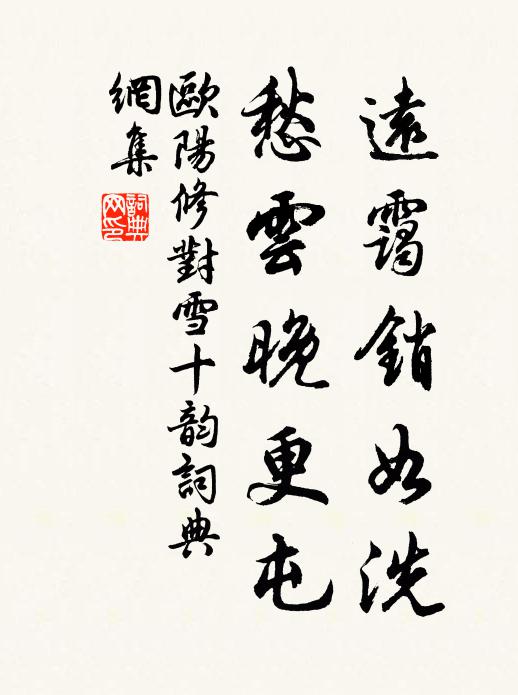 遠靄銷如洗
愁雲晚更屯
歐陽修對雪十韵詞典
網集
詞典
网印